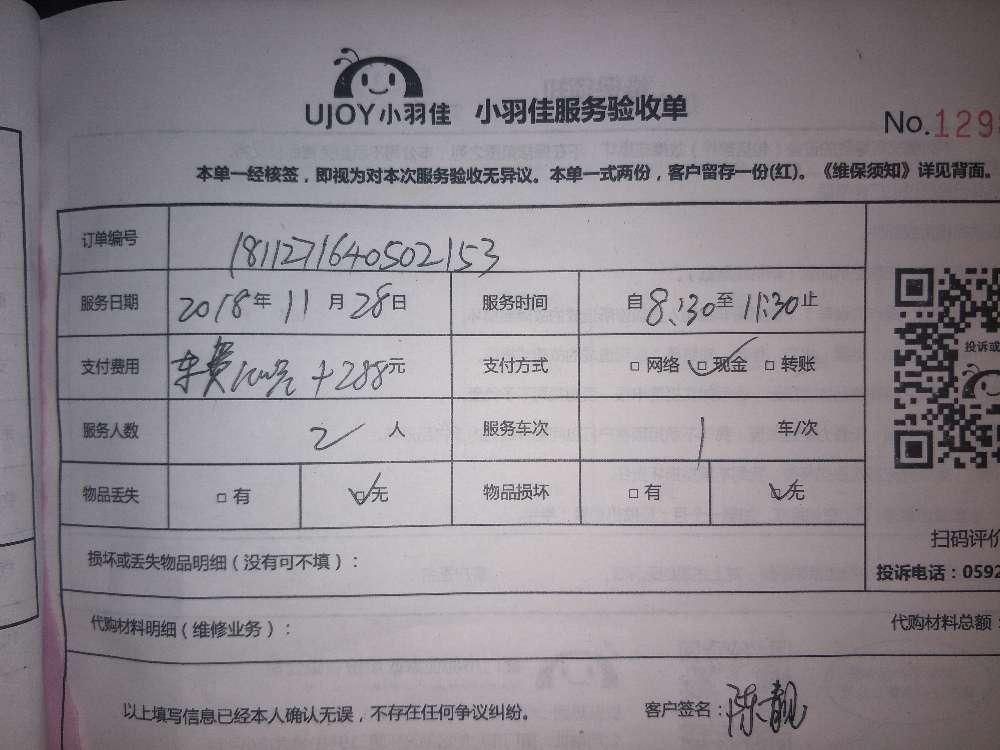 UJOY小羽佳 小羽佳服务验收单
No.129
本单一经核签，即视为对本次服务验收无异议。本单一式两份，客户留存一份(红)。《维保须知》详见背面。
订单编号 1811271640502153
服务日期 2018年11月28日 服务时间 自8:30至11:30止
支付费用 车费100元+288元 支付方式 □网络 ☑现金 □转账
投诉或
服务人数 2人 服务车次 1车/次
物品丢失 □有 ☑无 物品损坏 □有 ☑无
扫码评价
损坏或丢失物品明细（没有可不填）：
投诉电话：0592
代购材料明细（维修业务）： 代购材料总额：
以上填写信息已经本人确认无误，不存在任何争议纠纷。 客户签名：陈靓